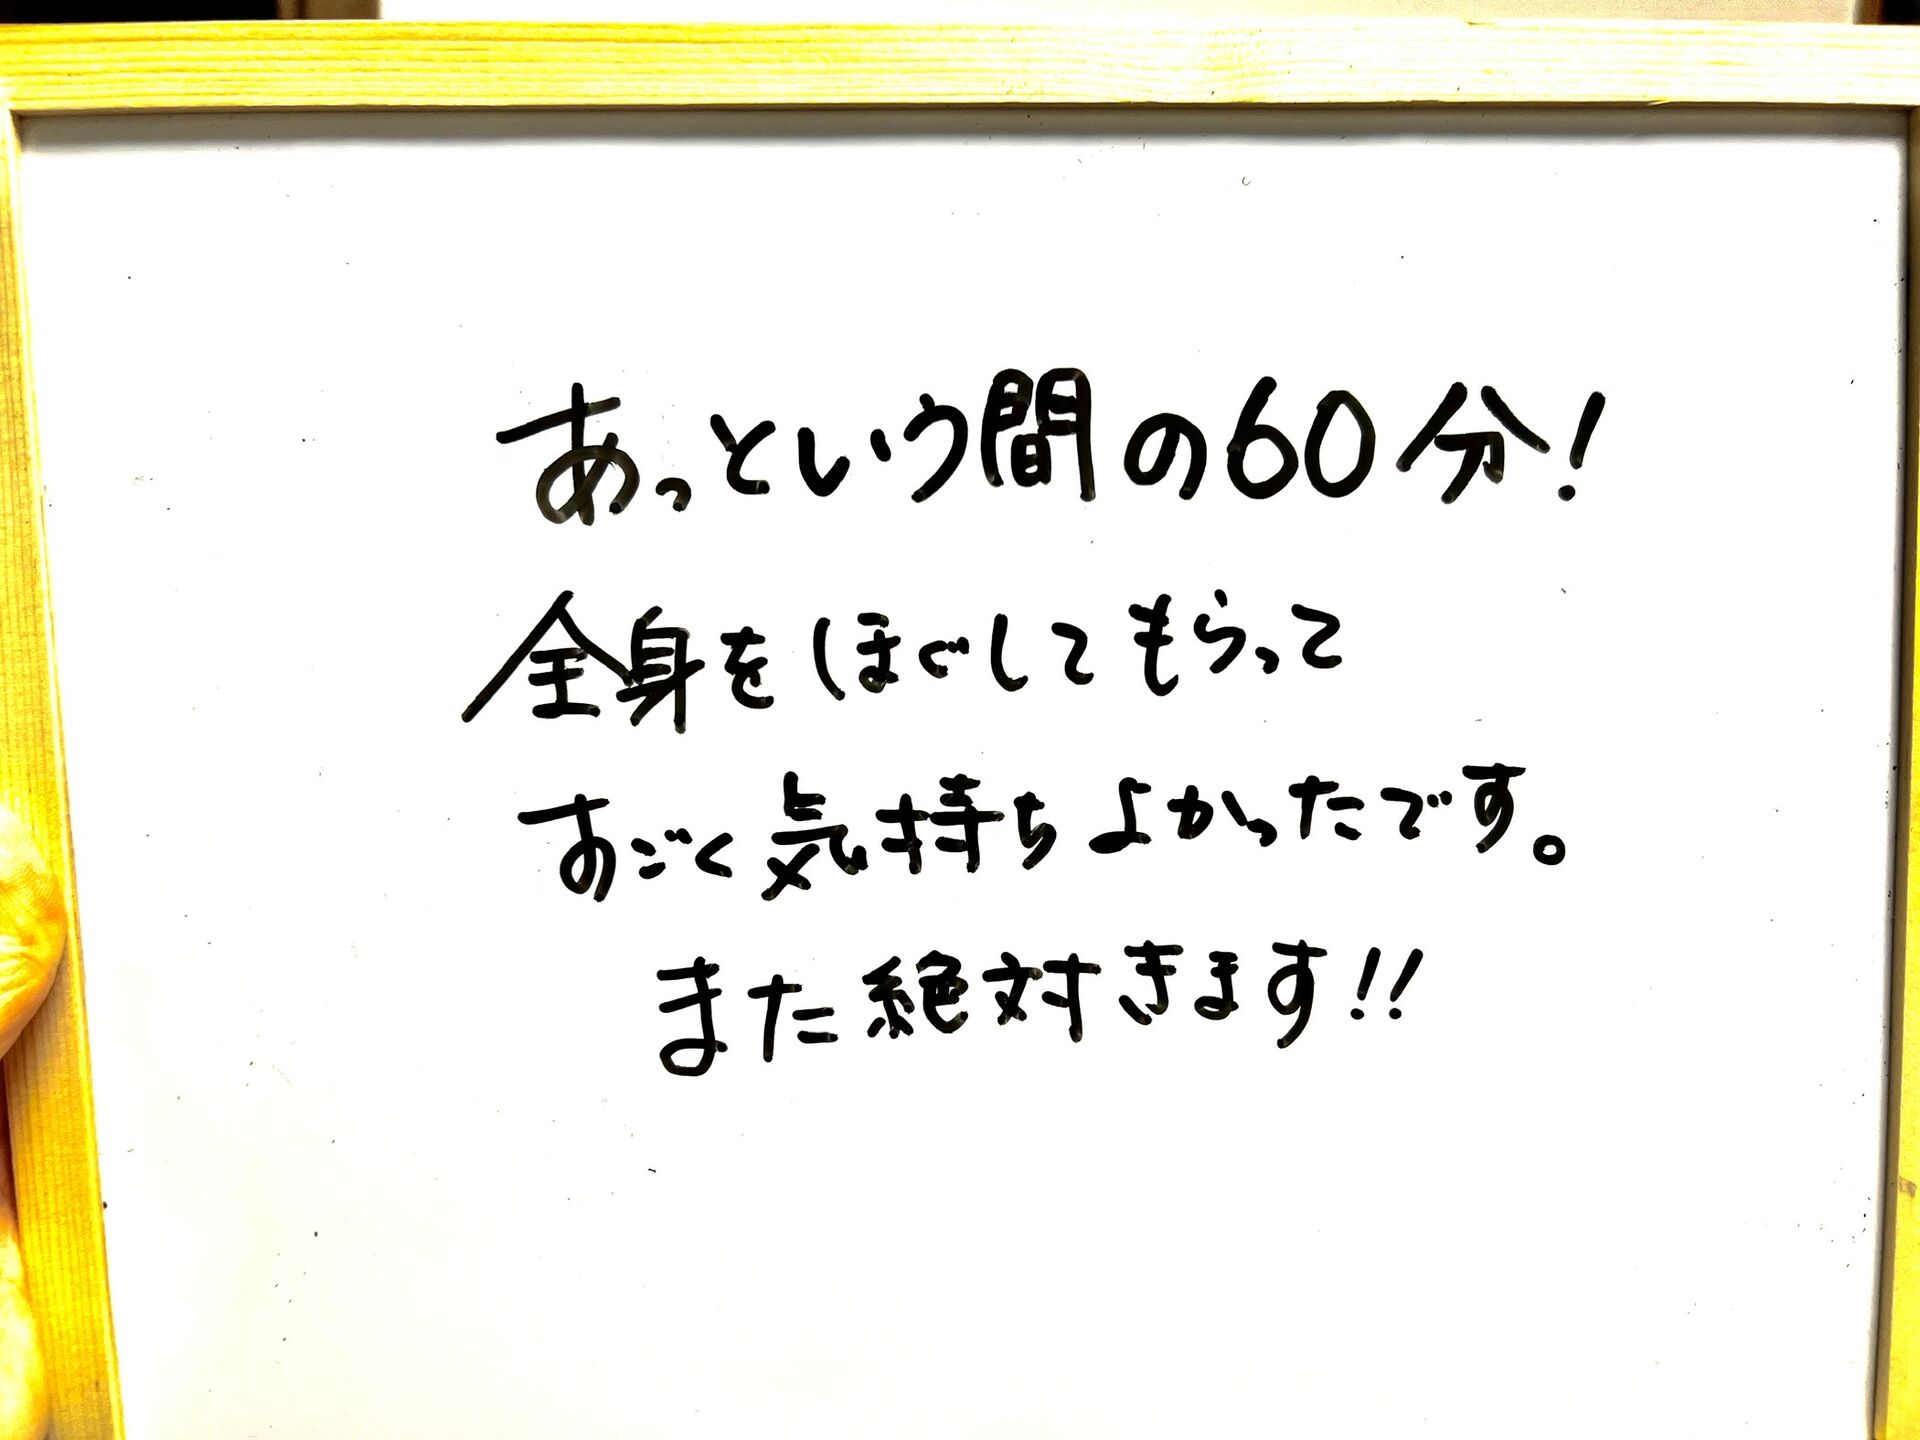 あっという間の60分!
全身をほぐしてもらって
すごく気持ちよかったです。
また絶対きます!!